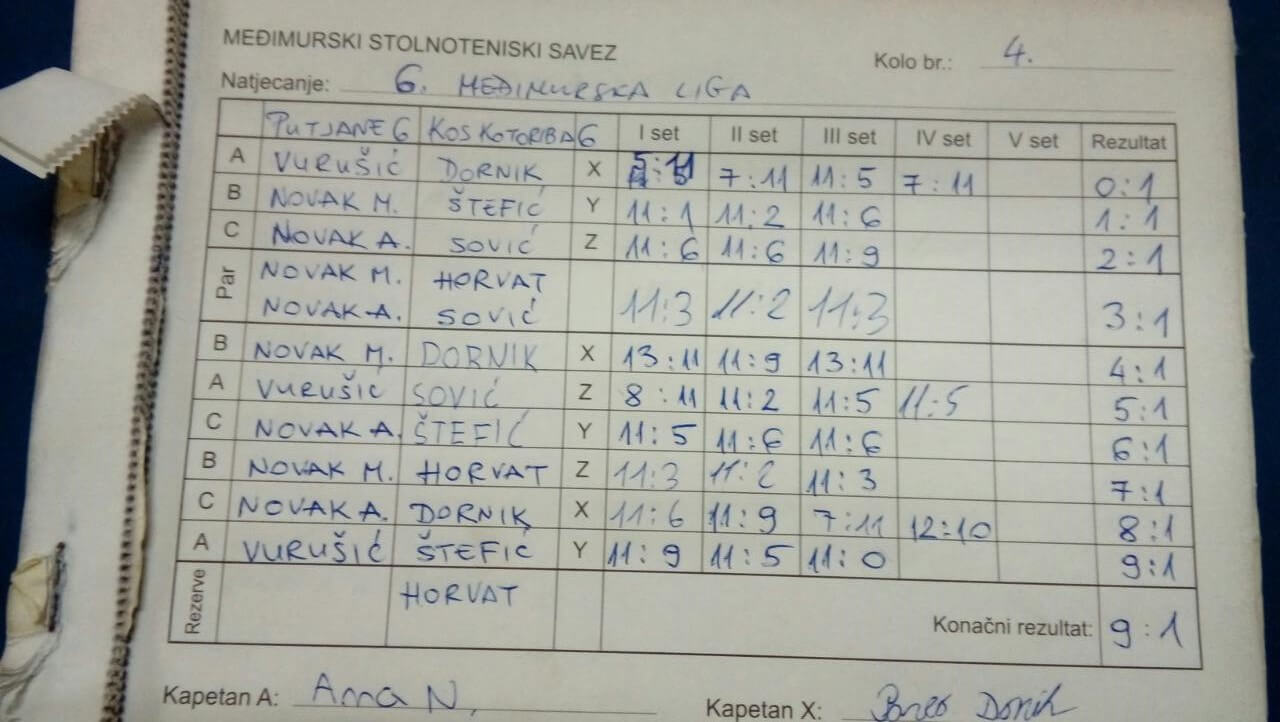 MEĐIMURSKI STOLNOTENISKI SAVEZ
Kolo br.: 4.
Natjecanje: 6. MEĐIMURSKA LIGA
PUTJANE 6 KOS KOTORIBA 6 I set II set III set IV set V set Rezultat
A VURUŠIĆ DORNIK X 5:11 7:11 11:5 7:11 0:1
B NOVAK M. ŠTEFIĆ Y 11:1 11:2 11:6 1:1
C NOVAK A. SOVIĆ Z 11:6 11:6 11:9 2:1
Par NOVAK M. HORVAT
NOVAK A. SOVIĆ 11:3 11:2 11:3 3:1
B NOVAK M. DORNIK X 13:11 11:9 13:11 4:1
A VURUŠIĆ SOVIĆ Z 8:11 11:2 11:5 11:5 5:1
C NOVAK A. ŠTEFIĆ Y 11:5 11:6 11:6 6:1
B NOVAK M. HORVAT Z 11:3 11:2 11:3 7:1
C NOVAK A. DORNIK X 11:6 11:9 7:11 12:10 8:1
A VURUŠIĆ ŠTEFIĆ Y 11:9 11:5 11:0 9:1
Rezerve HORVAT
Konačni rezultat: 9:1
Kapetan A: Anna N.
Kapetan X: